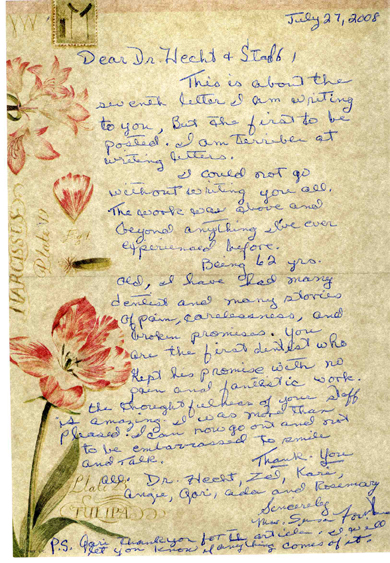 July 27, 2008
Dear Dr. Hecht & Staff,
This is about the
seventh letter I am writing
to you, But the first to be
posted. I am terriber at
writing letters.
I could not go
without writing you all.
The work was above and
beyond anything I've ever
experienced before.
Being 62 yrs.
old, I have had many
dentist and many stories
of pain, carelessness, and
broken promises. You
are the first dentist who
kept his promise with no
pain and fantastic work.
the thoughtfulness of your staff
is amazing. I was more than
pleased. I can now go out and not
to be embarrassed to smile
and talk.
Thank You
all: Dr. Hecht, Zed, Kari,
Angie, Qori, Aida and Rosemary
Sincerely
Mrs.
P.S. Qori thankyou for the article. I will
let you know if anything comes of it.
NARCISSUS
Plate
TULIPA